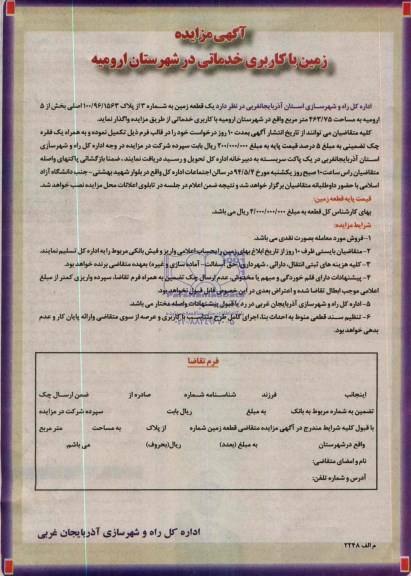 آگهی مزایده
زمین با کاربری خدماتی در شهرستان ارومیه
اداره کل راه و شهرسازی استان آذربایجانغربی در نظر دارد یک قطعه زمین به شماره ۳ از پلاک ۱۰۰/۹۶/۱۵۶۳ اصلی بخش از ۵
ارومیه به مساحت ۴۶۳/۷۵ متر مربع واقع در شهرستان ارومیه با کاربری خدماتی از طریق مزایده واگذار نماید.
کلیه متقاضیان می توانند از تاریخ انتشار آگهی بمدت ۱۰ روز درخواست خود را در قالب فرم ذیل تکمیل نموده و به همراه یک فقره
چک تضمینی به مبلغ ۵ درصد قیمت پایه به مبلغ ۲۰۰/۰۰۰/۰۰۰ ریال بابت سپرده شرکت در مزایده در وجه اداره کل راه و شهرسازی
استان آذربایجانغربی در یک پاکت سربسته به دبیرخانه اداره کل تحویل و رسید دریافت نمایند، ضمنا بازگشائی پاکتهای واصله
متقاضیان راس ساعت ۱۰ صبح روز یکشنبه مورخ ۹۴/۵/۴ در سالن اجتماعات اداره کل واقع در بلوار شهید بهشتی- جنب دانشگاه آزاد
اسلامی با حضور داوطلبانه متقاضیان برگزار خواهد شد و نتیجه ضمن اعلام در جلسه در تابلوی اعلانات محل مزایده نصب خواهد شد.
قیمت پایه قطعه زمین:
بهای کارشناسی کل قطعه به مبلغ ۴/۰۰۰/۰۰۰/۰۰۰ ریال می باشد.
شرایط مزایده:
۱- فروش مورد معامله بصورت نقدی می باشد.
۲- متقاضیان بایستی ظرف ۱۰ روز از تاریخ ابلاغ بهای زمین را بحساب اعلامی واریز و فیش بانکی مربوط را به اداره کل تسلیم نمایند.
۳- کلیه هزینه های ثبتی انتقال، دارائی، شهرداری (حق آسفالت- آماده سازی و غیره) بعهده متقاضی برنده خواهد بود.
۴- پیشنهادات دارای قلم خوردگی و مبهم یا مخدوش، عدم ارسال چک تضمین به همراه فرم تقاضا، سپرده واریزی کمتر از مبلغ
اعلامی موجب ابطال تقاضا شده و اعتراض بعدی در این خصوص قابل قبول نخواهد بود.
۵- اداره کل راه و شهرسازی آذربایجان غربی در رد یا قبول پیشنهادات واصله مختار می باشد.
۶- تنظیم سند قطعی منوط به احداث بنا، اجرای کامل طرح متناسب با کاربری و عرصه از سوی متقاضی وارائه پایان کار و عدم
بدهی خواهد بود.
فرم تقاضا
اینجانب فرزند شناسنامه شماره صادره از ضمن ارسال چک
تضمین به شماره مربوط به بانک به مبلغ ریال بابت سپرده شرکت در مزایده
با قبول کلیه شرایط مندرج در آگهی مزایده متقاضی قطعه زمین شماره از پلاک به مساحت متر مربع
واقع درشهرستان به مبلغ (بعدد) ریال(بحروف) می باشم.
نام و امضای متقاضی:
آدرس و شماره تلفن:
اداره کل راه و شهرسازی آذربایجان غربی
م الف ۲۲۴۸